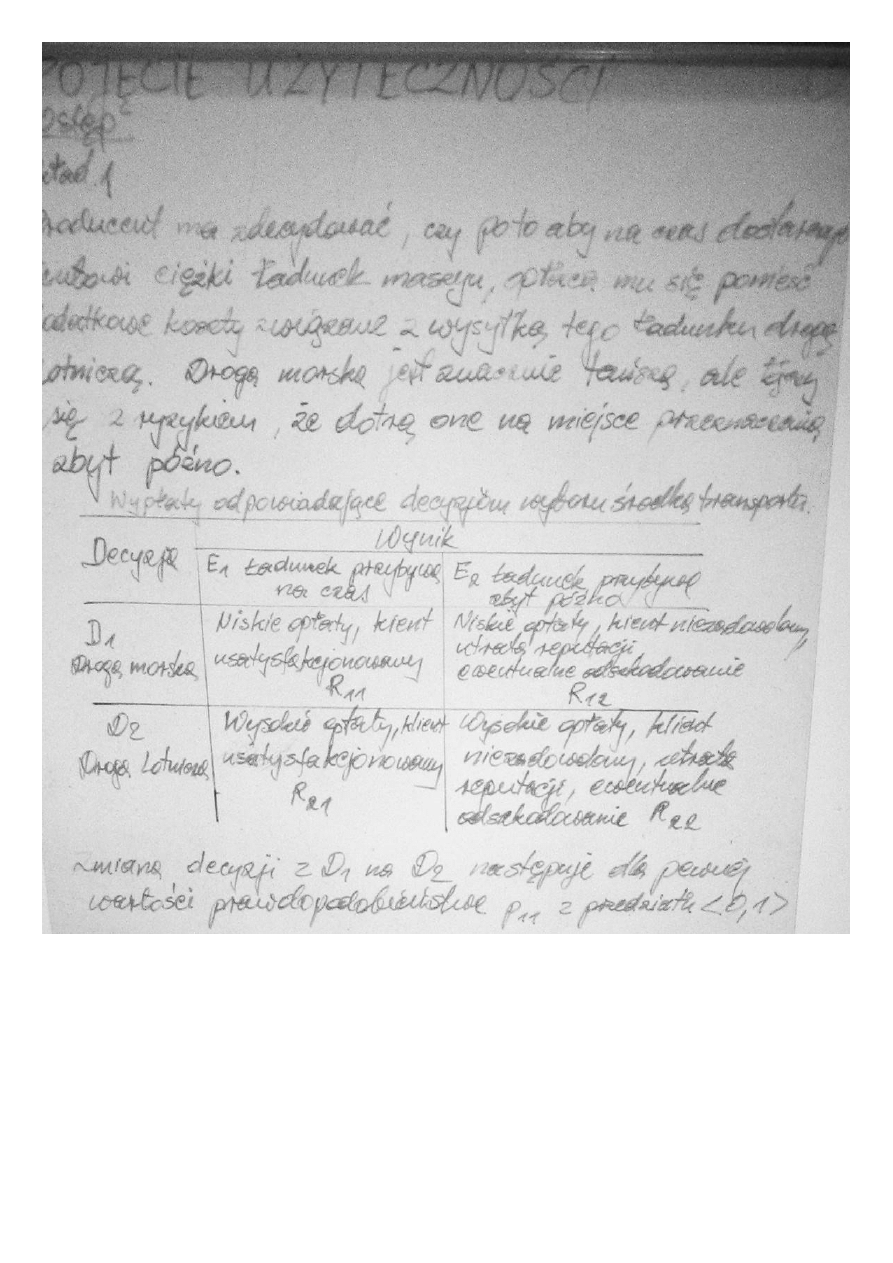 POJĘCIE UŻYTECZNOŚCI
Wstęp
kład 1
Producent ma zdecydować, czy po to aby na czas dostarczyć
ciężki ładunek maszyn, opłaca mu się ponieść
dodatkowe koszty związane z wysyłką tego ładunku drogą
lotniczą. Drogą morską jest znacznie taniszą, ale łączy
się z ryzykiem, że dotrą one na miejsce przeznaczenia
zbyt późno.
Wypłaty odpowiadające decyzjom wyboru środka transportu.
Decyzja
Wynik
E1 Ładunek przybywa na czas
E2 Ładunek przybywa zbyt późno
D1
Drogą morską
Niskie opłaty, klient
usatysfakcjonowany
R11
Niskie opłaty, klient niezadowolony,
utrata reputacji
ewentualne odszkodowanie
R12
D2
Drogą Lotniczą
Wysokie opłaty, klient
usatysfakcjonowany
R21
Wysokie opłaty, klient
niezadowolony, utrata
reputacji, ewentualne
odszkodowanie R22
Zmiana decyzji z D1 na D2 następuje dla pewnej
wartości prawdopodobieństwa p11 z przedziału <0,1>